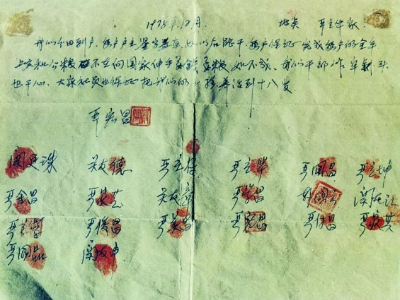 1978年12月 地点 严立华家
我们分田到户，每户户主签字盖章，如以后能干，每户保证完成每户的全年
上交和公粮，不在向国家伸手要钱要粮，如不成，我们干部作牢刹头
也干心，大家社员也保证把我们的小孩养活到十八岁
严宏昌
关廷珠 关友德 严立符 严立华 严国昌 严立坤
严金昌 严家芝 关友章 严学昌 韩国云 关友江
严立学 严俊昌 严美昌 严宏昌 严付昌 严家其
严国品 关友申